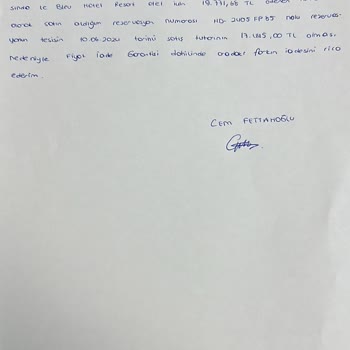 sinde Le Bleu Hotel Resort otel için 19.771,68 TL ödeme
olarak satın aldığım rezervasyon numarası HD- 2405 FP85 nolu rezervas-
yonun tesisin 10.06.2024 tarihli satış tutarının 17.485,00 TL olması
nedeniyle Fiyat İade Garantisi dahilinde aradaki farkın iadesini rica
ederim.
CEM FETTAHOĞLU